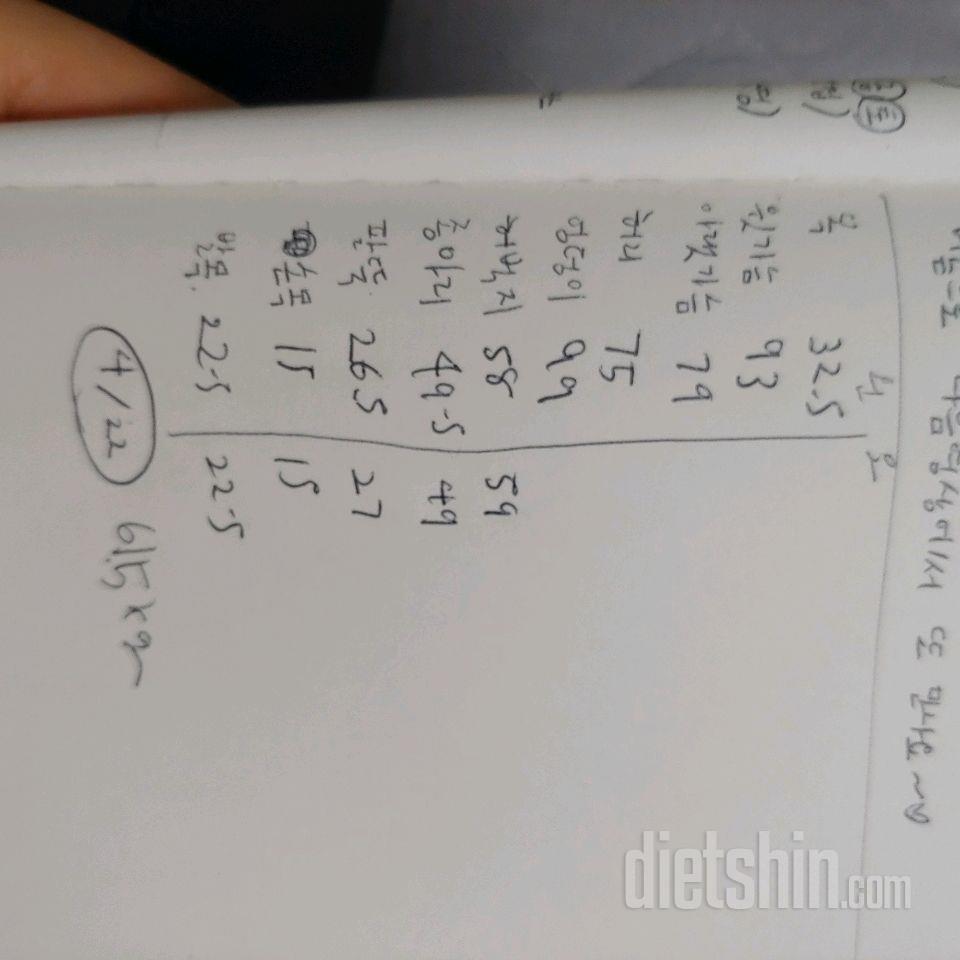 다음 영상에서 또 만나요~
왼 오
목 32.5
윗가슴 93
아랫가슴 79
허리 75
엉덩이 99
허벅지 58 59
종아리 49.5 49
팔뚝 26.5 27
손목 15 15
발목. 22.5 22.5
4/22 61.5kg
dietshin.com